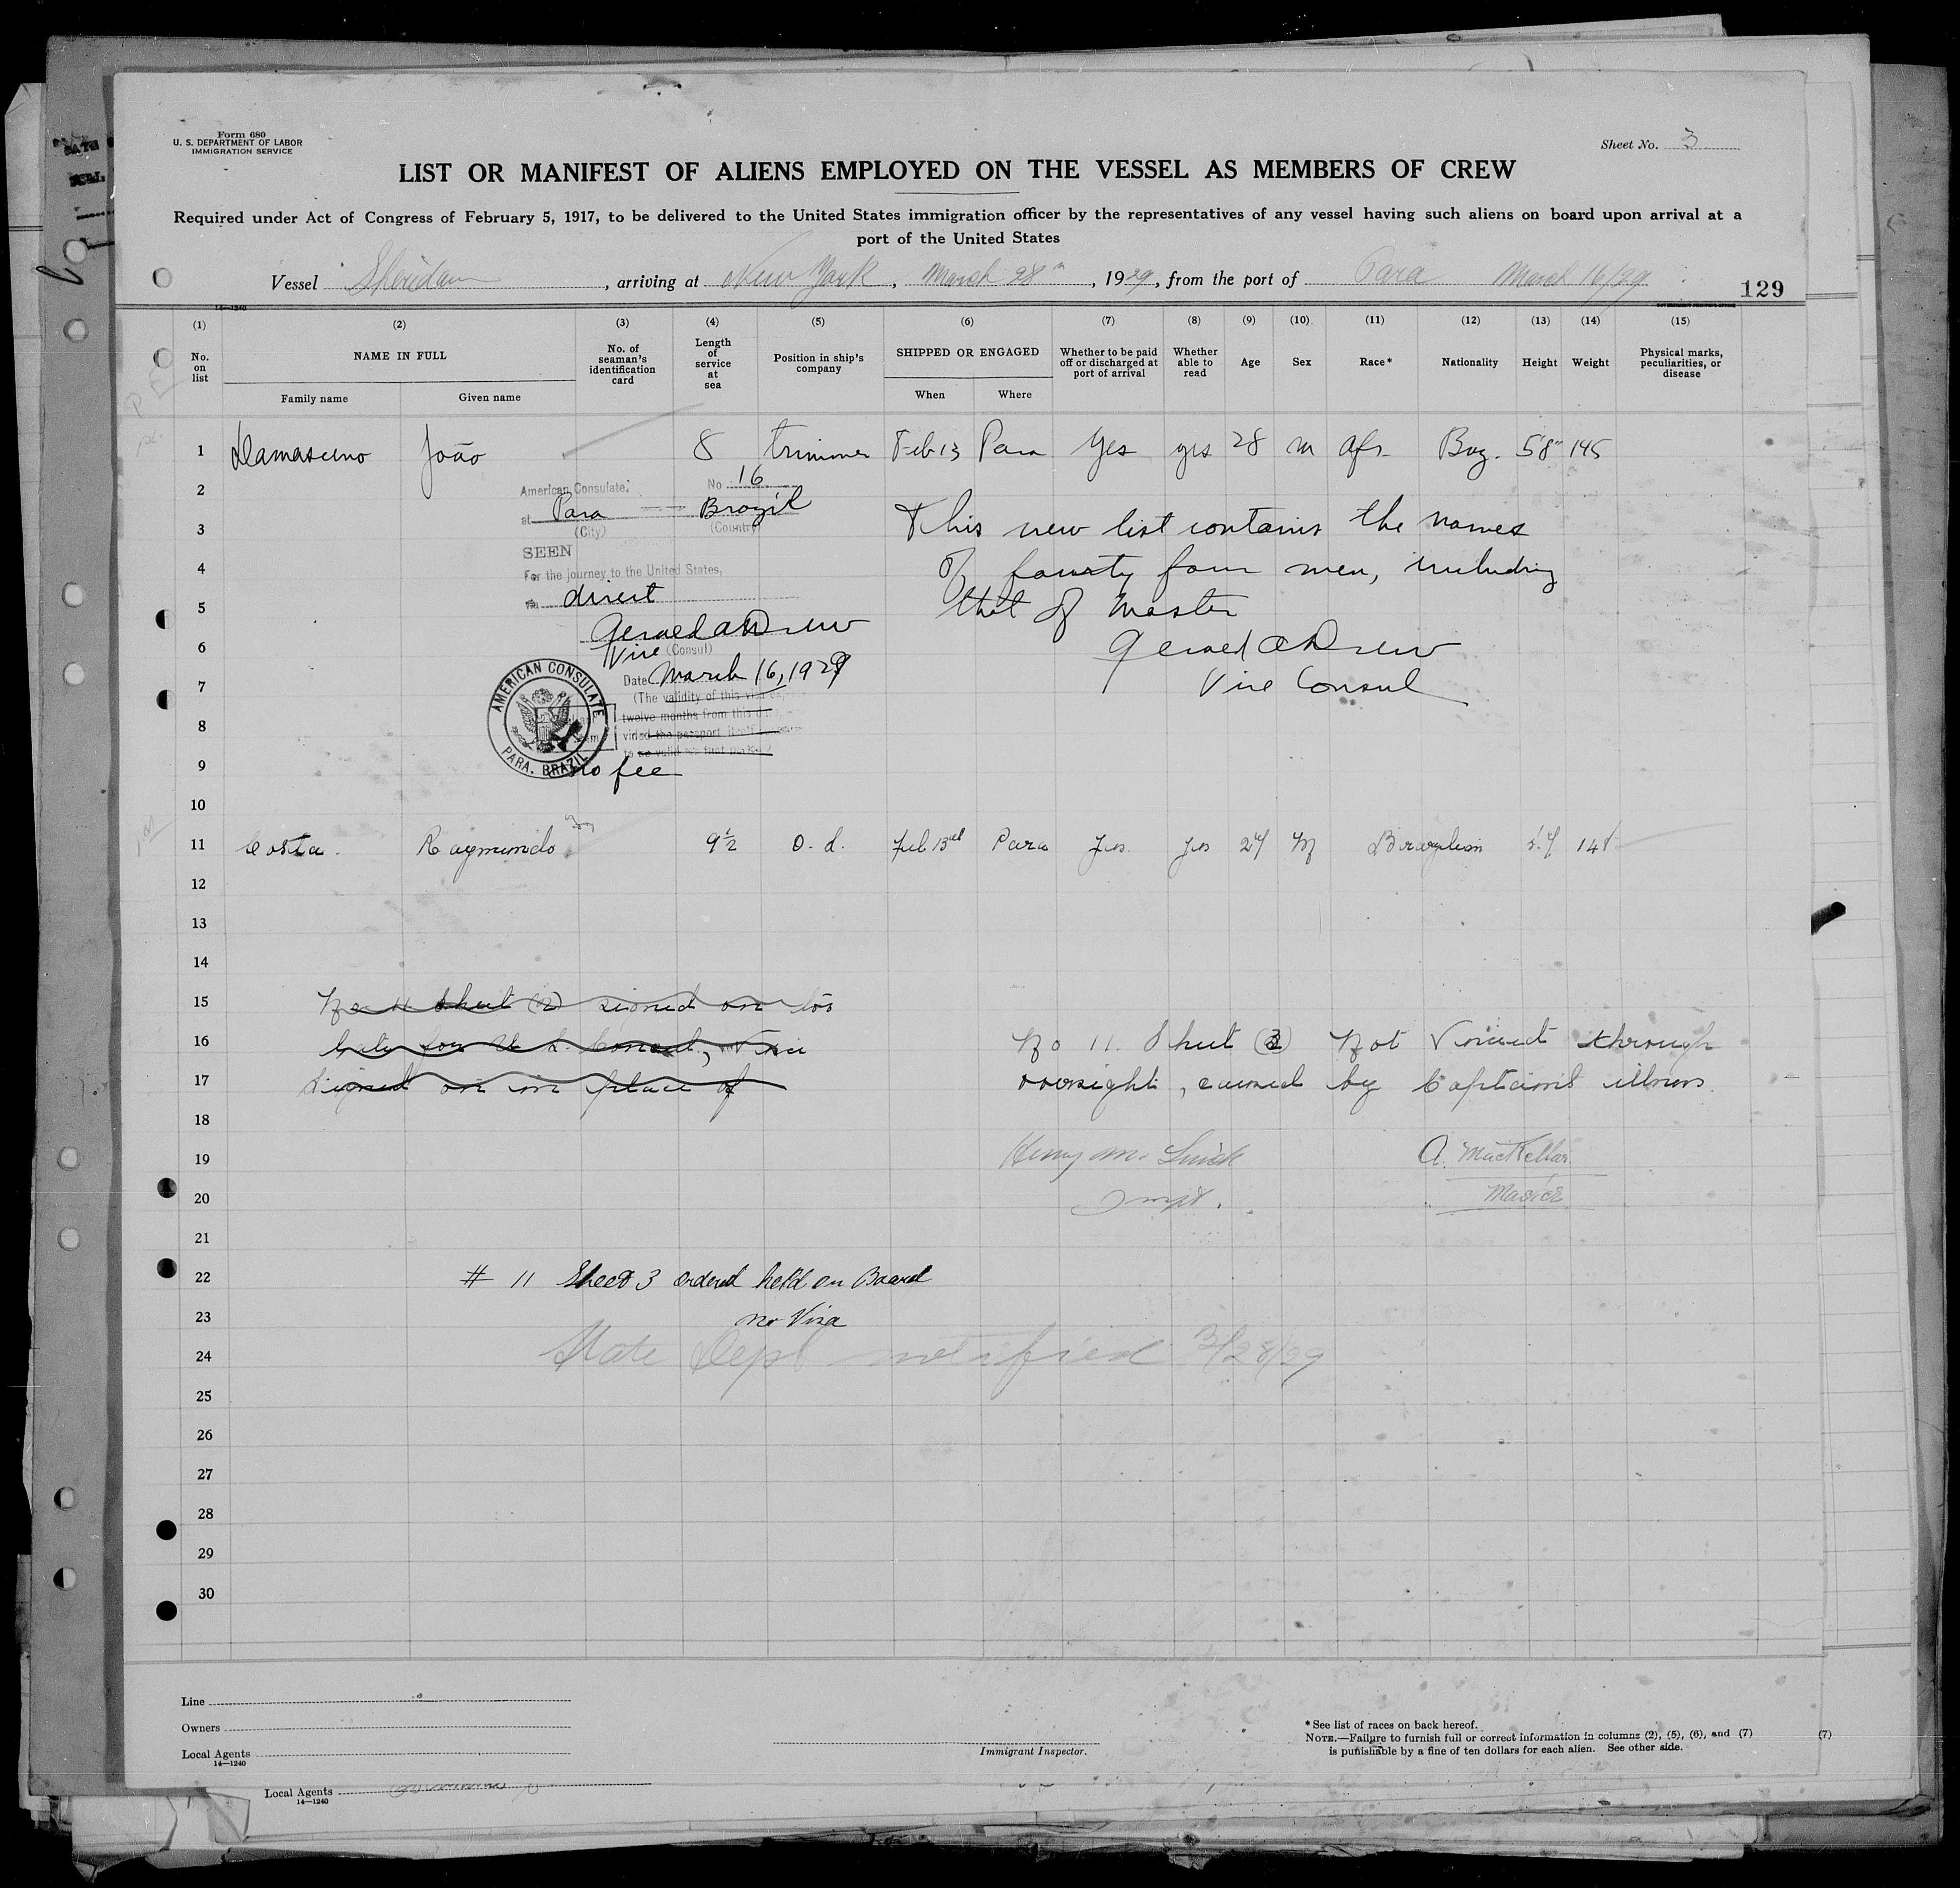 Form 680
U. S. DEPARTMENT OF LABOR
IMMIGRATION SERVICE
Sheet No. 3
LIST OR MANIFEST OF ALIENS EMPLOYED ON THE VESSEL AS MEMBERS OF CREW
Required under Act of Congress of February 5, 1917, to be delivered to the United States immigration officer by the representatives of any vessel having such aliens on board upon arrival at a
port of the United States
Vessel Sheridan, arriving at New York, March 28th, 1929, from the port of Para March 16/29
129
14—1240
(1) (2) (3) (4) (5) (6) (7) (8) (9) (10) (11) (12) (13) (14) (15)
No. on list NAME IN FULL No. of seaman's identification card Length of service at sea Position in ship's company SHIPPED OR ENGAGED Whether to be paid off or discharged at port of arrival Whether able to read Age Sex Race* Nationality Height Weight Physical marks, peculiarities, or disease
Family name Given name When Where
1 Damasceno João 8 trimmer Feb 13 Para Yes yes 28 m afr. Braz. 5'8" 145
2 American Consulate, No 16
at Para Brazil
3 (City) (Country)
This new list contains the names
SEEN
4 For the journey to the United States,
of fourty four men, including
5 direct
that of Master
Gerald A Drew
6 Vice (Consul)
Gerald A Drew
7 Date March 16, 1929
Vice Consul
(The validity of this visa
8 twelve months from this
vided the passport
to be valid for that period)
AMERICAN CONSULATE
PARA. BRAZIL
9 no fee
10
11 Costa. Raymundo 9½ O. S. Feb 13th Para Yes Yes 24 M Brazilian 5.4 148
12
13
14
15 No 11 Sheet (2) signed on too
16 late for U. S. Consul, Visa
No 11. Sheet (3) Not Viseed through
17 Signed on in place of
oversight, caused by Captains illness.
18
19 Henry M.
A. MacKellar.
20 Master
21
22 # 11 Sheet 3 ordered held on Board
23 no Visa
24 State Dept notified 3/28/29
25
26
27
28
29
30
Line
Owners
Local Agents
14—1240
Immigrant Inspector.
*See list of races on back hereof.
NOTE.—Failure to furnish full or correct information in columns (2), (5), (6), and (7)
is punishable by a fine of ten dollars for each alien. See other side.
(7)
Local Agents
14—1240